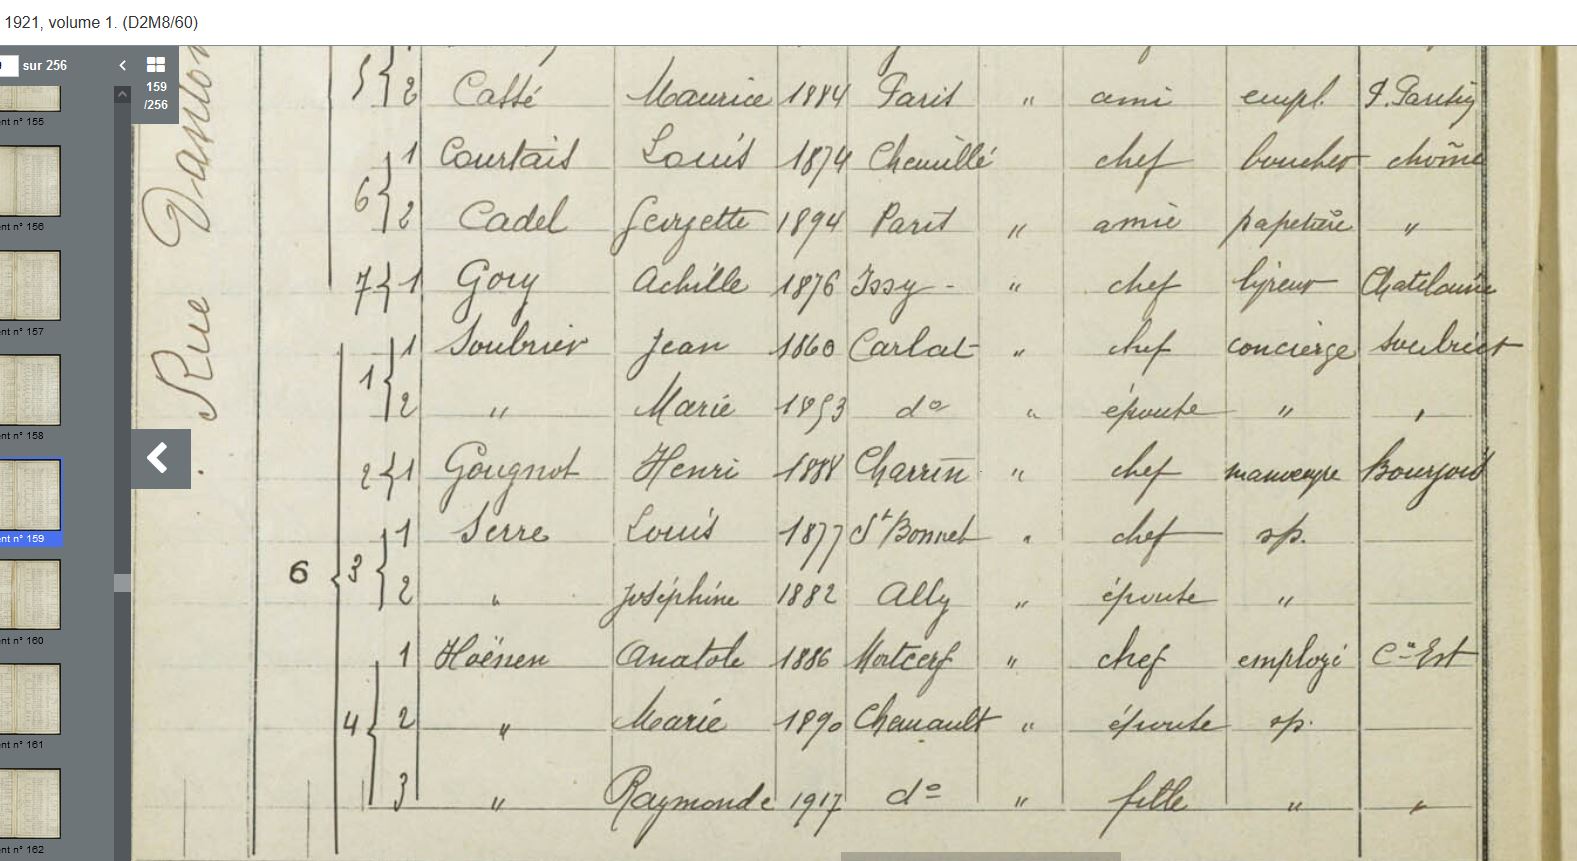 1921, volume 1. (D2M8/60)
sur 256
159
/256
nt n° 155
nt n° 156
nt n° 157
nt n° 158
nt n° 159
nt n° 160
nt n° 161
nt n° 162
Rue Danton
5 2 Cassé Maurice 1884 Paris " ami empl.
6 1 Courtais Louis 1874 Chemillé chef boucher chôme
2 Cadel Georgette 1894 Paris " amie papetière "
7 1 Gory Achille 1876 Issy - " chef livreur Chatelaine
6
1 1 Soubrier Jean 1860 Carlat " chef concierge Soubrier
2 " Marie 1853 do " épouse " "
2 1 Gougnot Henri 1888 Charrin " chef manœuvre Bourjois
3 1 Serre Louis 1877 St Bonnet " chef sp.
2 " Joséphine 1882 Ally " épouse "
4 1 Hoënen Anatole 1886 Mortcerf " chef employé Cie Est
2 " Marie 1890 Chenault " épouse sp.
3 " Raymonde 1917 do " fille " "